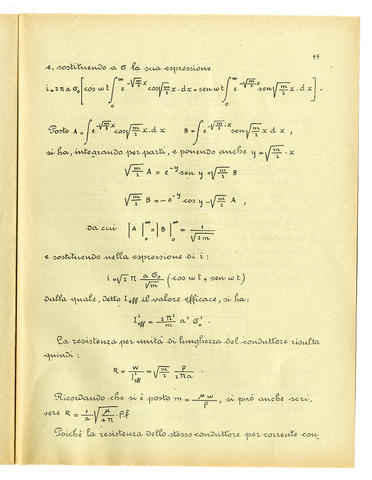 45
e, sostituendo a σ la sua espressione
i = 2πa σ₀ [ cos ωt ∫₀^∞ e^(-√(m/2) x) cos √(m/2) x . dx + sen ωt ∫₀^∞ e^(-√(m/2) x) sen √(m/2) x . dx ] .
Posto A = ∫ e^(-√(m/2) x) cos √(m/2) x . dx B = ∫ e^(-√(m/2) . x) sen √(m/2) x dx ,
si ha, integrando per parti, e ponendo anche y = √(m/2) . x
√(m/2) A = e^(-y) sen y + √(m/2) B
√(m/2) B = - e^(-y) cos y - √(m/2) A ,
da cui |A|₀^∞ = |B|₀^∞ = 1/√(2m)
e sostituendo nella espressione di i :
i = √2 π (a σ₀)/√m ( cos ωt + sen ωt )
dalla quale, detto I_eff il valore efficace, si ha:
I²_eff = (2π²/m) a² σ₀² .
La resistenza per unità di lunghezza del conduttore risulta
quindi :
R = W/I²_eff = √(m/2) ρ/(2πa) .
Ricordando che si è posto m = μω/ρ , si può anche scri-
vere R = (1/a) √(μ/(4π) . ρf)
Poichè la resistenza dello stesso conduttore per corrente con,